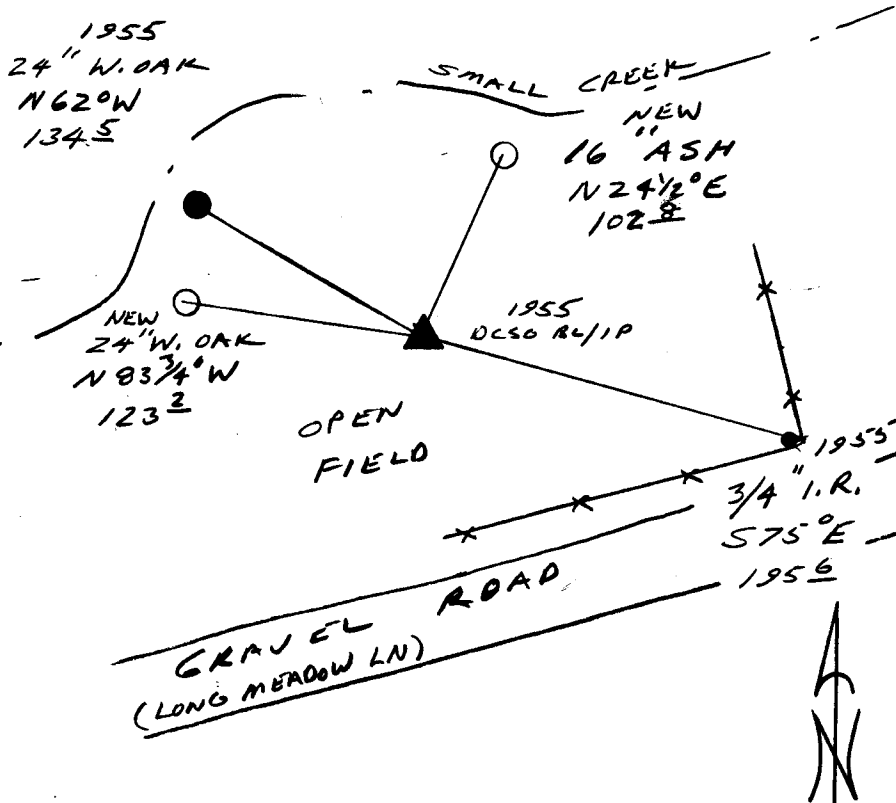 1955
24" W. OAK
N 62° W
134.5
SMALL CREEK
NEW
16" ASH
N 24 1/2° E
102.8
NEW
24" W. OAK
N 83 3/4° W
123.2
1955
DCSO BL/IP
OPEN
FIELD
1955
3/4" I.R.
S 75° E
195.6
GRAVEL ROAD
(LONG MEADOW LN)
N